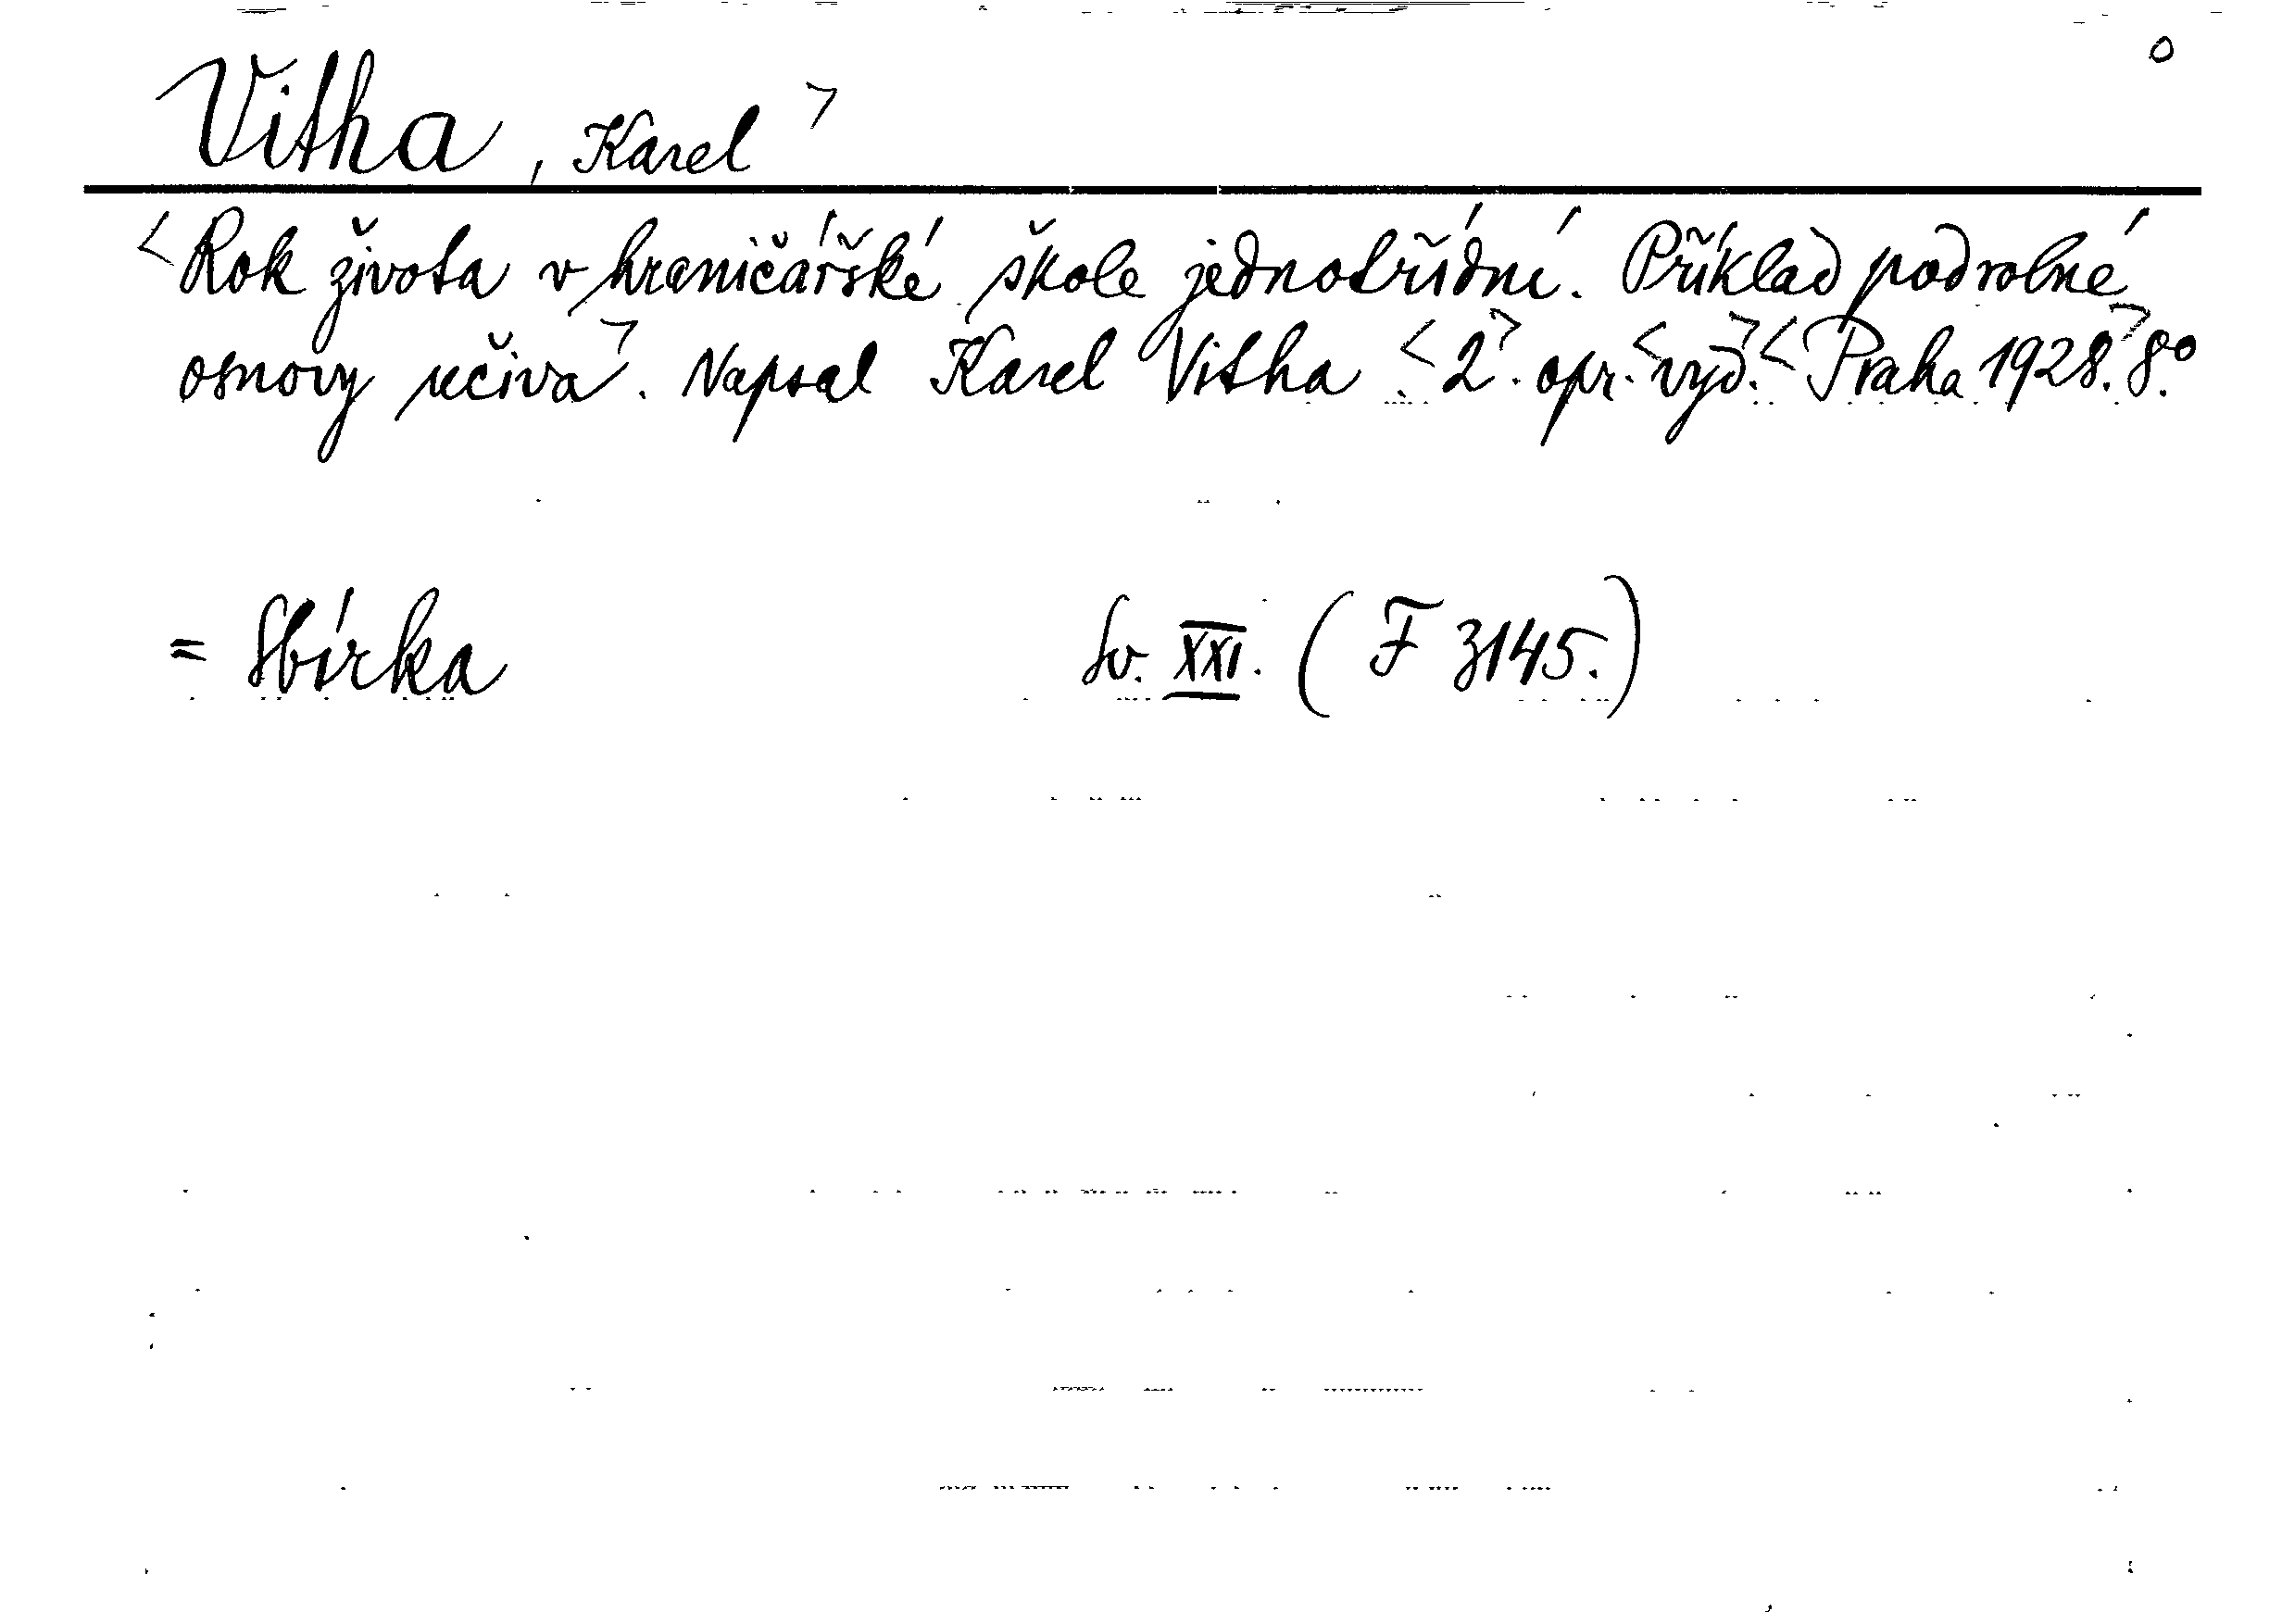 o
Vitha, Karel >
< Rok života v hraničářské škole jednotřídní. Příklad podrobné
osnovy učiva >. Napsal Karel Vitha < 2 >. opr. < vyd. > < Praha 1928. > 8.º
= Sbírka Sv. XXI. ( F 3145.)